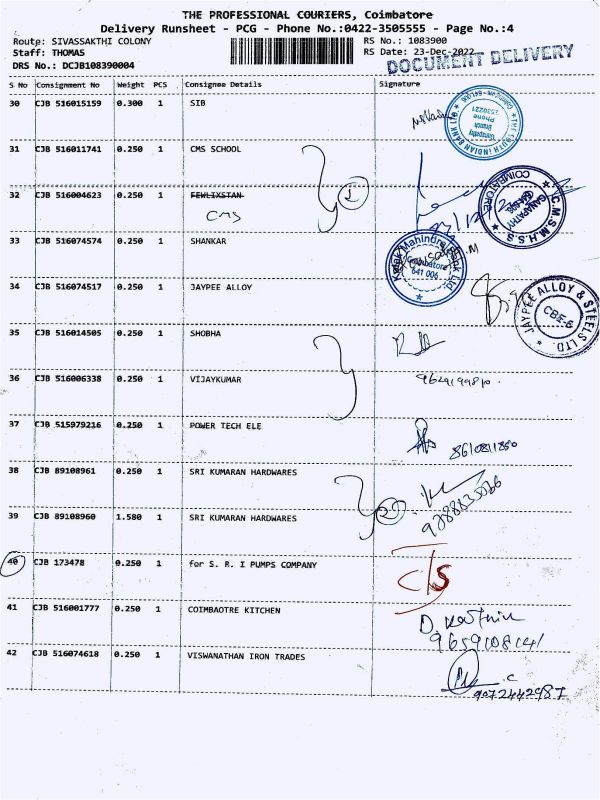 THE PROFESSIONAL COURIERS, Coimbatore
Delivery Runsheet - PCG - Phone No.:0422-3505555 - Page No.:4
Route: SIVASSAKTHI COLONY RS No.: 1083900
Staff: THOMAS RS Date: 23-Dec-2022
DRS No.: DCJB108390004 DOCUMENT DELIVERY
S No Consignment No Weight PCS Consignee Details Signature
30 CJB 516015159 0.300 1 SIB
THE SOUTH INDIAN BANK LTD Ganapathy Branch Phone 2530221 Coimbatore - 641 006
31 CJB 516011741 0.250 1 CMS SCHOOL
32 CJB 516004623 0.250 1 FEWLIXSTAN
CMS
C.M.S.M.H.S.S. GANAPATHY COIMBATORE
33 CJB 516074574 0.250 1 SHANKAR
Kotak Mahindra Bank Ltd. Coimbatore 641 006
34 CJB 516074517 0.250 1 JAYPEE ALLOY
JAYPEE ALLOY & STEELS LTD. CBE-6
35 CJB 516014505 0.250 1 SHOBHA
36 CJB 516006338 0.250 1 VIJAYKUMAR
37 CJB 515979216 0.250 1 POWER TECH ELE
8610811850
38 CJB 89108961 0.250 1 SRI KUMARAN HARDWARES
39 CJB 89108960 1.580 1 SRI KUMARAN HARDWARES
40 CJB 173478 0.250 1 for S. R. I PUMPS COMPANY
41 CJB 516001777 0.250 1 COIMBAOTRE KITCHEN
42 CJB 516074618 0.250 1 VISWANATHAN IRON TRADES
9072442987